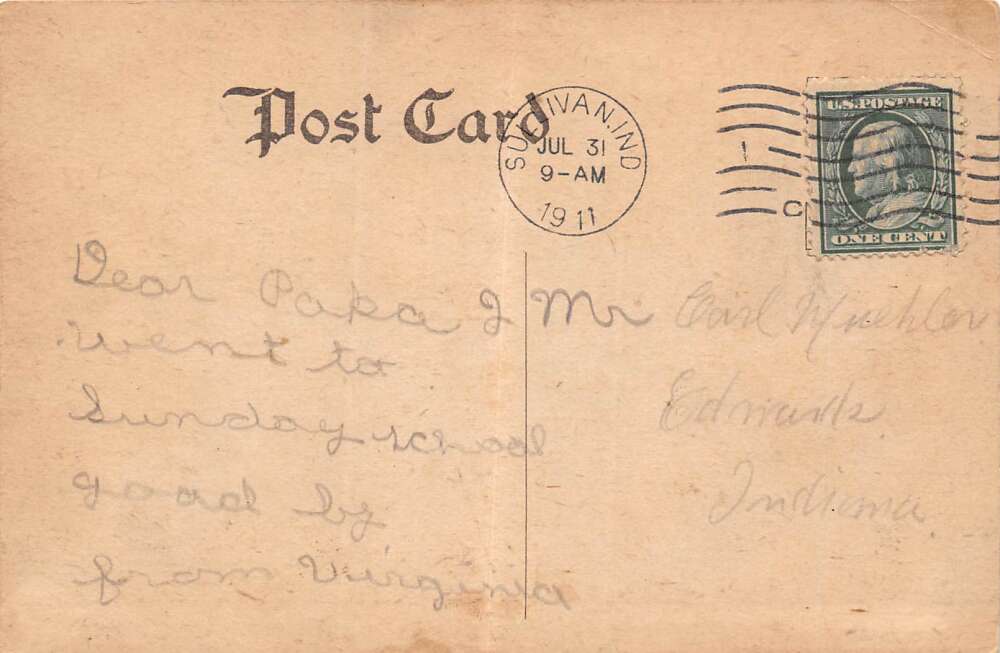 Post Card
SULLIVAN, IND
JUL 31
9-AM
1911
U.S. POSTAGE
ONE CENT
C
Dear Papa I
went to
Sunday school
good by
from Virginia
Mr Earl
Edwards
Indiana